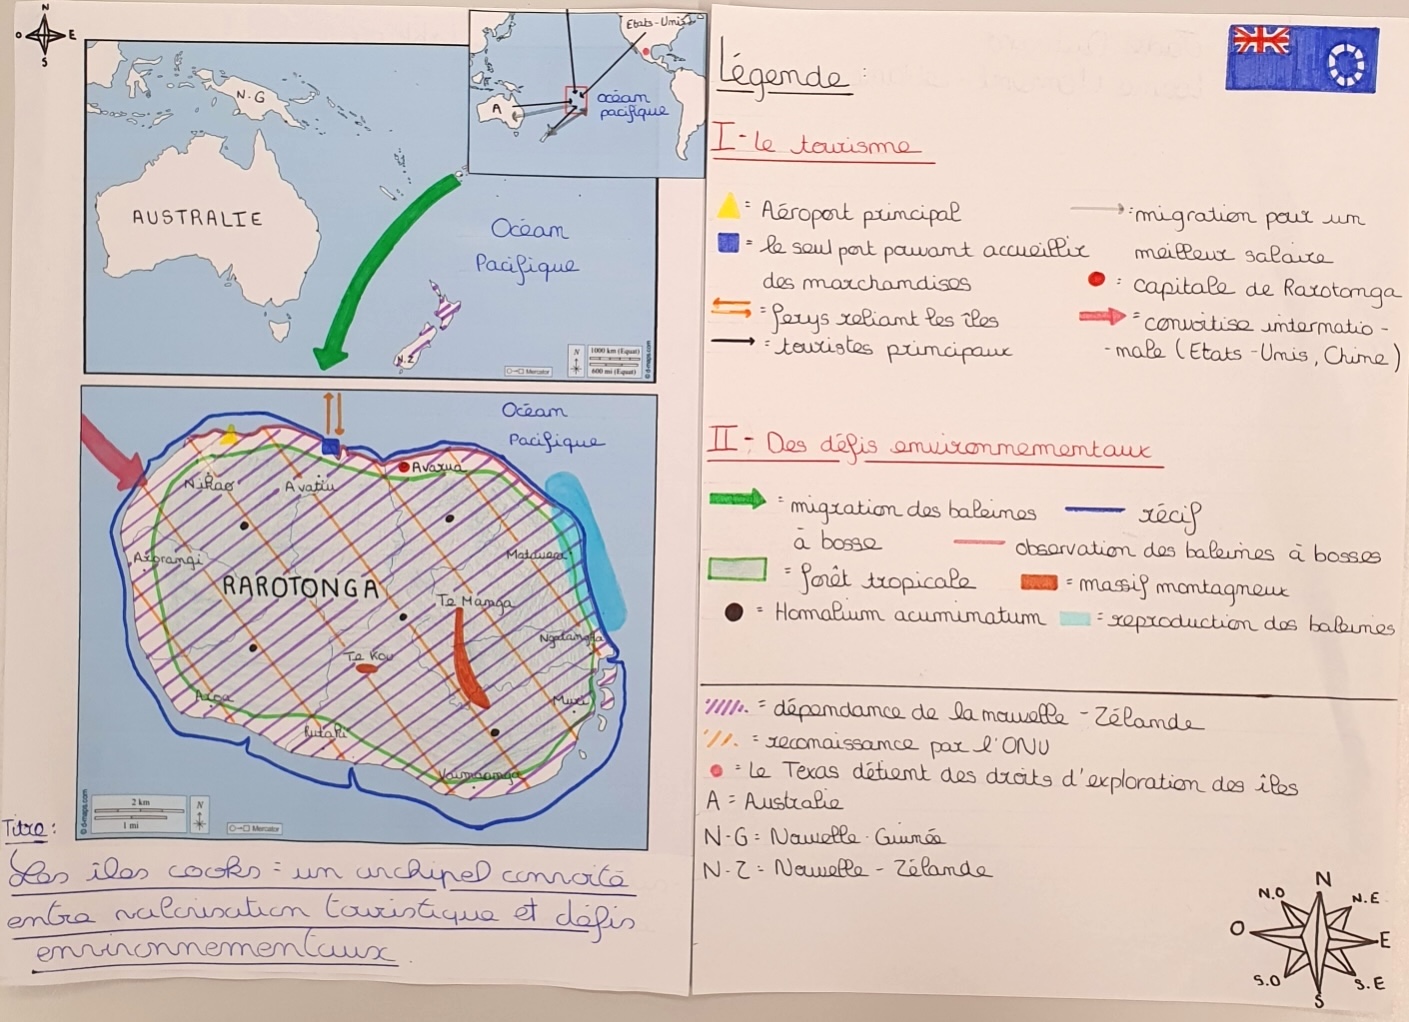 N
O E
S
Etats-Unis
A
océan
pacifique
N.G
AUSTRALIE
Océan
Pacifique
N.Z
Mercator
N
1000 km (Equat)
600 mi (Equat)
© d-maps.com
Océan
Pacifique
Avarua
Nikao
Avatiu
Matavera
Arorangi
RAROTONGA
Te Manga
Ngatangiia
Te Kou
Aroa
Muri
Rutaki
Vaimaanga
© d-maps.com
2 km
1 mi
N
Mercator
Titre :
Les îles cooks = un archipel convoité
entre valorisation touristique et défis
environnementaux.
Légende :
I - le tourisme
= Aéroport principal
= le seul port pouvant accueillir
des marchandises
= ferys reliant les îles
= touristes principaux
= migration pour un
meilleur salaire
= capitale de Rarotonga
= convoitise internatio -
- nale (Etats - Unis, Chine)
II - Des défis environnementaux
= migration des baleines
à bosse
récif
observation des baleines à bosses
= forêt tropicale
= massif montagneux
= Homalium acuminatum
= reproduction des baleines
= dépendance de la nouvelle - Zélande
= reconaissance par l'ONU
= le Texas détient des droits d'exploration des îles
A = Australie
N-G = Nouvelle-Guinée
N-Z = Nouvelle - Zélande
N
N.O N.E
O E
S.O S.E
S